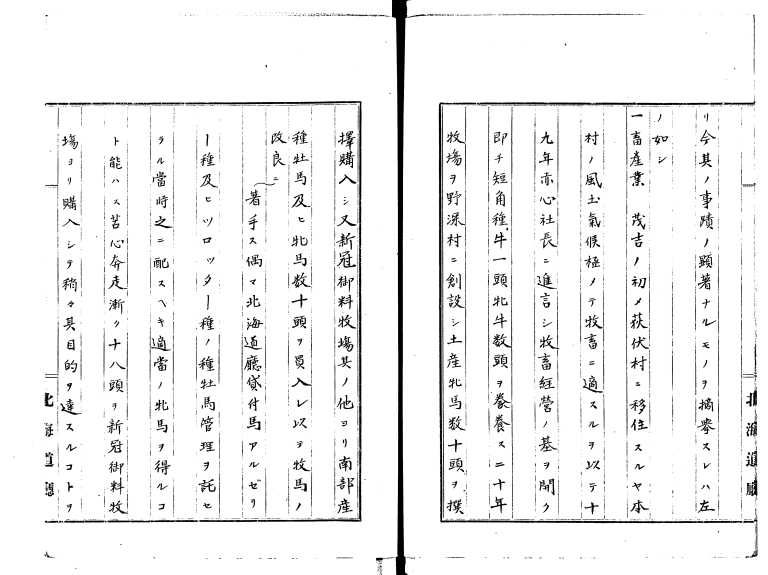 リ今其ノ事蹟ノ顕著ナルモノヲ摘擧スレハ左
ノ如シ
一畜產業 茂吉ノ初メ荻伏村ニ移住スルヤ本
村ノ風土氣候極メテ牧畜ニ適スルヲ以テ十
九年赤心社長ニ進言シ牧畜経營ノ基ヲ開ク
即チ短角種牛一頭牝牛数頭ヲ豢養ス二十年
牧場ヲ野深村ニ創設シ土産牝馬数十頭ヲ撰
北海道廳
擇購入シ又新冠御料牧場其ノ他ヨリ南部産
種牡馬及ヒ牝馬数十頭ヲ買入レ以テ牧馬ノ
改良ニ
着手ス偶マ北海道廳貸付馬アルゼリ
ー種及ヒツロッター種ノ種牡馬管理ヲ託セ
ラル當時之ニ配スヘキ適當ノ牝馬ヲ得ルコ
ト能ハス苦心奔走漸ク十八頭ヲ新冠御料牧
場ヨリ購入シテ稍々其目的ヲ達スルコトヲ
北海道廳